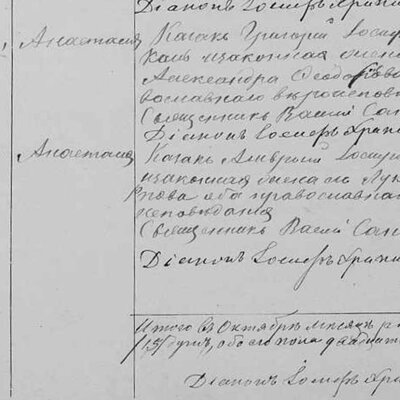 Діаконъ Іосифъ Храпи
Анастасія Казакъ Григорій Іосиф
законная жена
Александра Ѳеодо
вославнаго вѣроисповѣ
Священникъ Васий Сап
Діаконъ Іосифъ Храпи
Анастасія Казакъ Іосиф
законная жена его Лук
пова оба православнаг
исповѣданія
Священникъ Васий Сап
Діаконъ Іосифъ Храпи
Итого въ Октябрѣ мѣсяцѣ р
обоего пола двадцат
Діаконъ Іосифъ Храпи